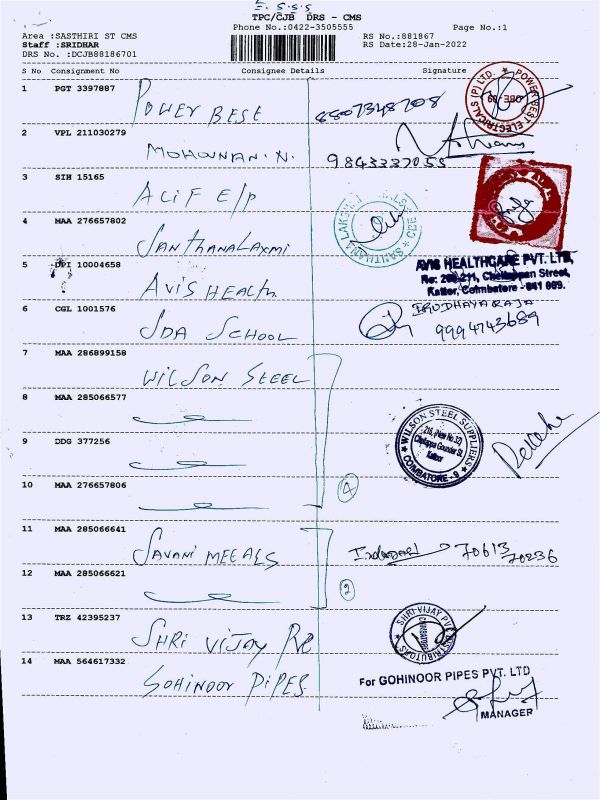 TPC/CJB DRS - CMS
Phone No.:0422-3505555 Page No.:1
Area :SASTHIRI ST CMS RS No.:881867
Staff :SRIDHAR RS Date:28-Jan-2022
DRS No. :DCJB88186701
S No Consignment No Consignee Details Signature
1 PGT 3397887 POWER BEST 8807348708
2 VPL 211030279 MOHOUNAN. N. 9843337055
3 SIH 15165 ALIF E/P
4 MAA 276657802 SANTHANALAXMI
5 DPI 10004658 AVIS HEALTH
AVIS HEALTHCARE PVT. LTD,
Kattor, Coimbatore - 641 009.
6 CGL 1001576 SDA SCHOOL
IRUDHAYARAJA
9994743689
7 MAA 286899158 WILSON STEEL
8 MAA 285066577
WILSON STEEL SUPPLIERS
216, (New No.32)
Chellappa Gounder St.
Kattoor
COIMBATORE - 9
9 DDG 377256
10 MAA 276657806 4
11 MAA 285066641 SAVANI MEEALS 70613
70236
12 MAA 285066621 2
13 TRZ 42395237 SHRI VIJAY PVC
SHRI VIJAY PVC DISTRIBUTORS
14 MAA 564617332 GOHINOOR PIPES
For GOHINOOR PIPES PVT. LTD
MANAGER